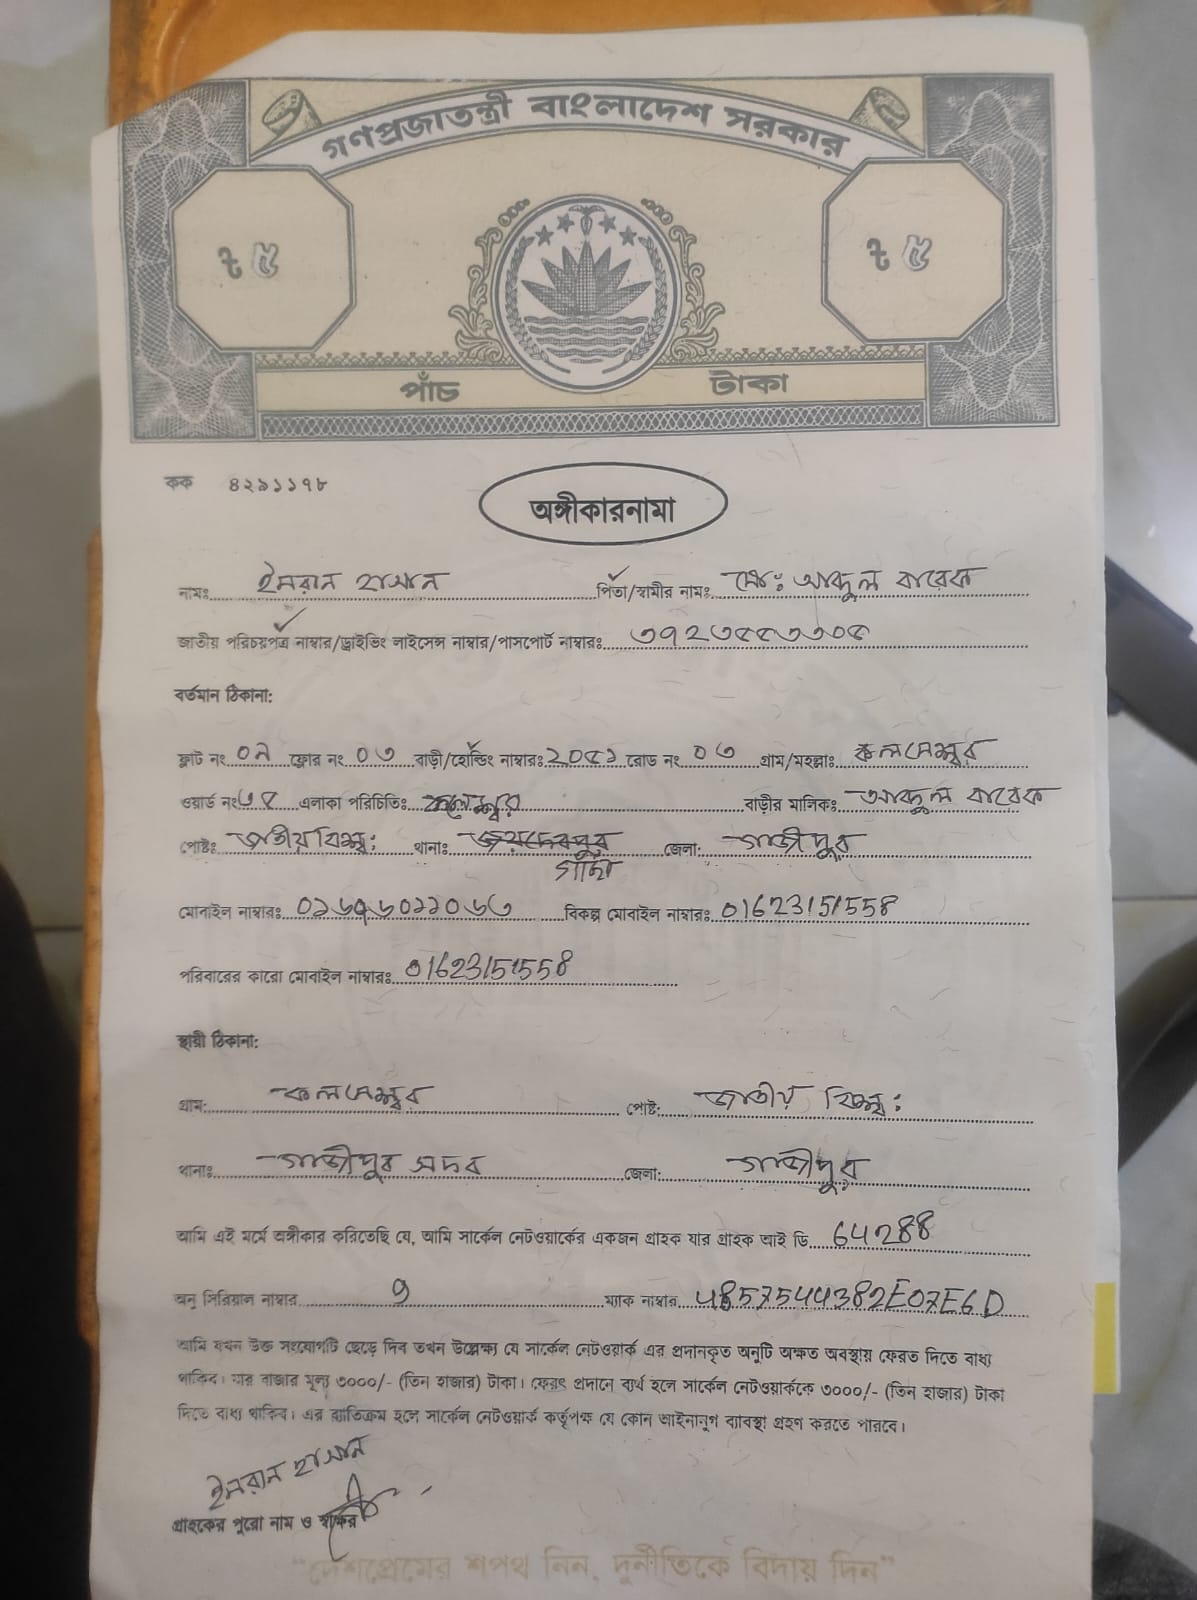 গণপ্রজাতন্ত্রী বাংলাদেশ সরকার
৳ ৫ ৳ ৫
পাঁচ টাকা
কক ৪২৯১১৭৮
অঙ্গীকারনামা
নামঃ ইমরান হাসান পিতা/স্বামীর নামঃ মোঃ আব্দুল বারেক
জাতীয় পরিচয়পত্র নাম্বার/ড্রাইভিং লাইসেন্স নাম্বার/পাসপোর্ট নাম্বারঃ
বর্তমান ঠিকানা:
ফ্লাট নং ফ্লোর নং ০৩ বাড়ী/হোল্ডিং নাম্বারঃ রোড নং ০৩ গ্রাম/মহল্লাঃ কলমেশ্বর
ওয়ার্ড নংঃ এলাকা পরিচিতিঃ বাড়ীর মালিকঃ আব্দুল বারেক
পোষ্টঃ জাতীয় বিশ্বঃ থানাঃ জয়দেবপুর জেলা: গাজীপুর
গাছা
মোবাইল নাম্বারঃ বিকল্প মোবাইল নাম্বারঃ 01623151558
পরিবারের কারো মোবাইল নাম্বারঃ 01623151558
স্থায়ী ঠিকানা:
গ্রাম: কলমেশ্বর পোষ্ট: জাতীয় বিশ্বঃ
থানাঃ গাজীপুর সদর জেলা: গাজীপুর
আমি এই মর্মে অঙ্গীকার করিতেছি যে, আমি সার্কেল নেটওয়ার্কের একজন গ্রাহক যার গ্রাহক আই ডি 64288
অনু সিরিয়াল নাম্বার 9 ম্যাক নাম্বার 4857544382E07E6D
আমি যখন উক্ত সংযোগটি ছেড়ে দিব তখন উল্লেক্ষ্য যে সার্কেল নেটওয়ার্ক এর প্রদানকৃত অনুটি অক্ষত অবস্থায় ফেরত দিতে বাধ্য
থাকিব। যার বাজার মূল্য ৩০০০/- (তিন হাজার) টাকা। ফেরৎ প্রদানে ব্যর্থ হলে সার্কেল নেটওয়ার্ককে ৩০০০/- (তিন হাজার) টাকা
দিতে বাধ্য থাকিব। এর ব্যতিক্রম হলে সার্কেল নেটওয়ার্ক কর্তৃপক্ষ যে কোন আইনানুগ ব্যাবস্থা গ্রহণ করতে পারবে।
ইমরান হাসান
গ্রাহকের পুরো নাম ও স্বাক্ষর
"দেশপ্রেমের শপথ নিন, দুর্নীতিকে বিদায় দিন"